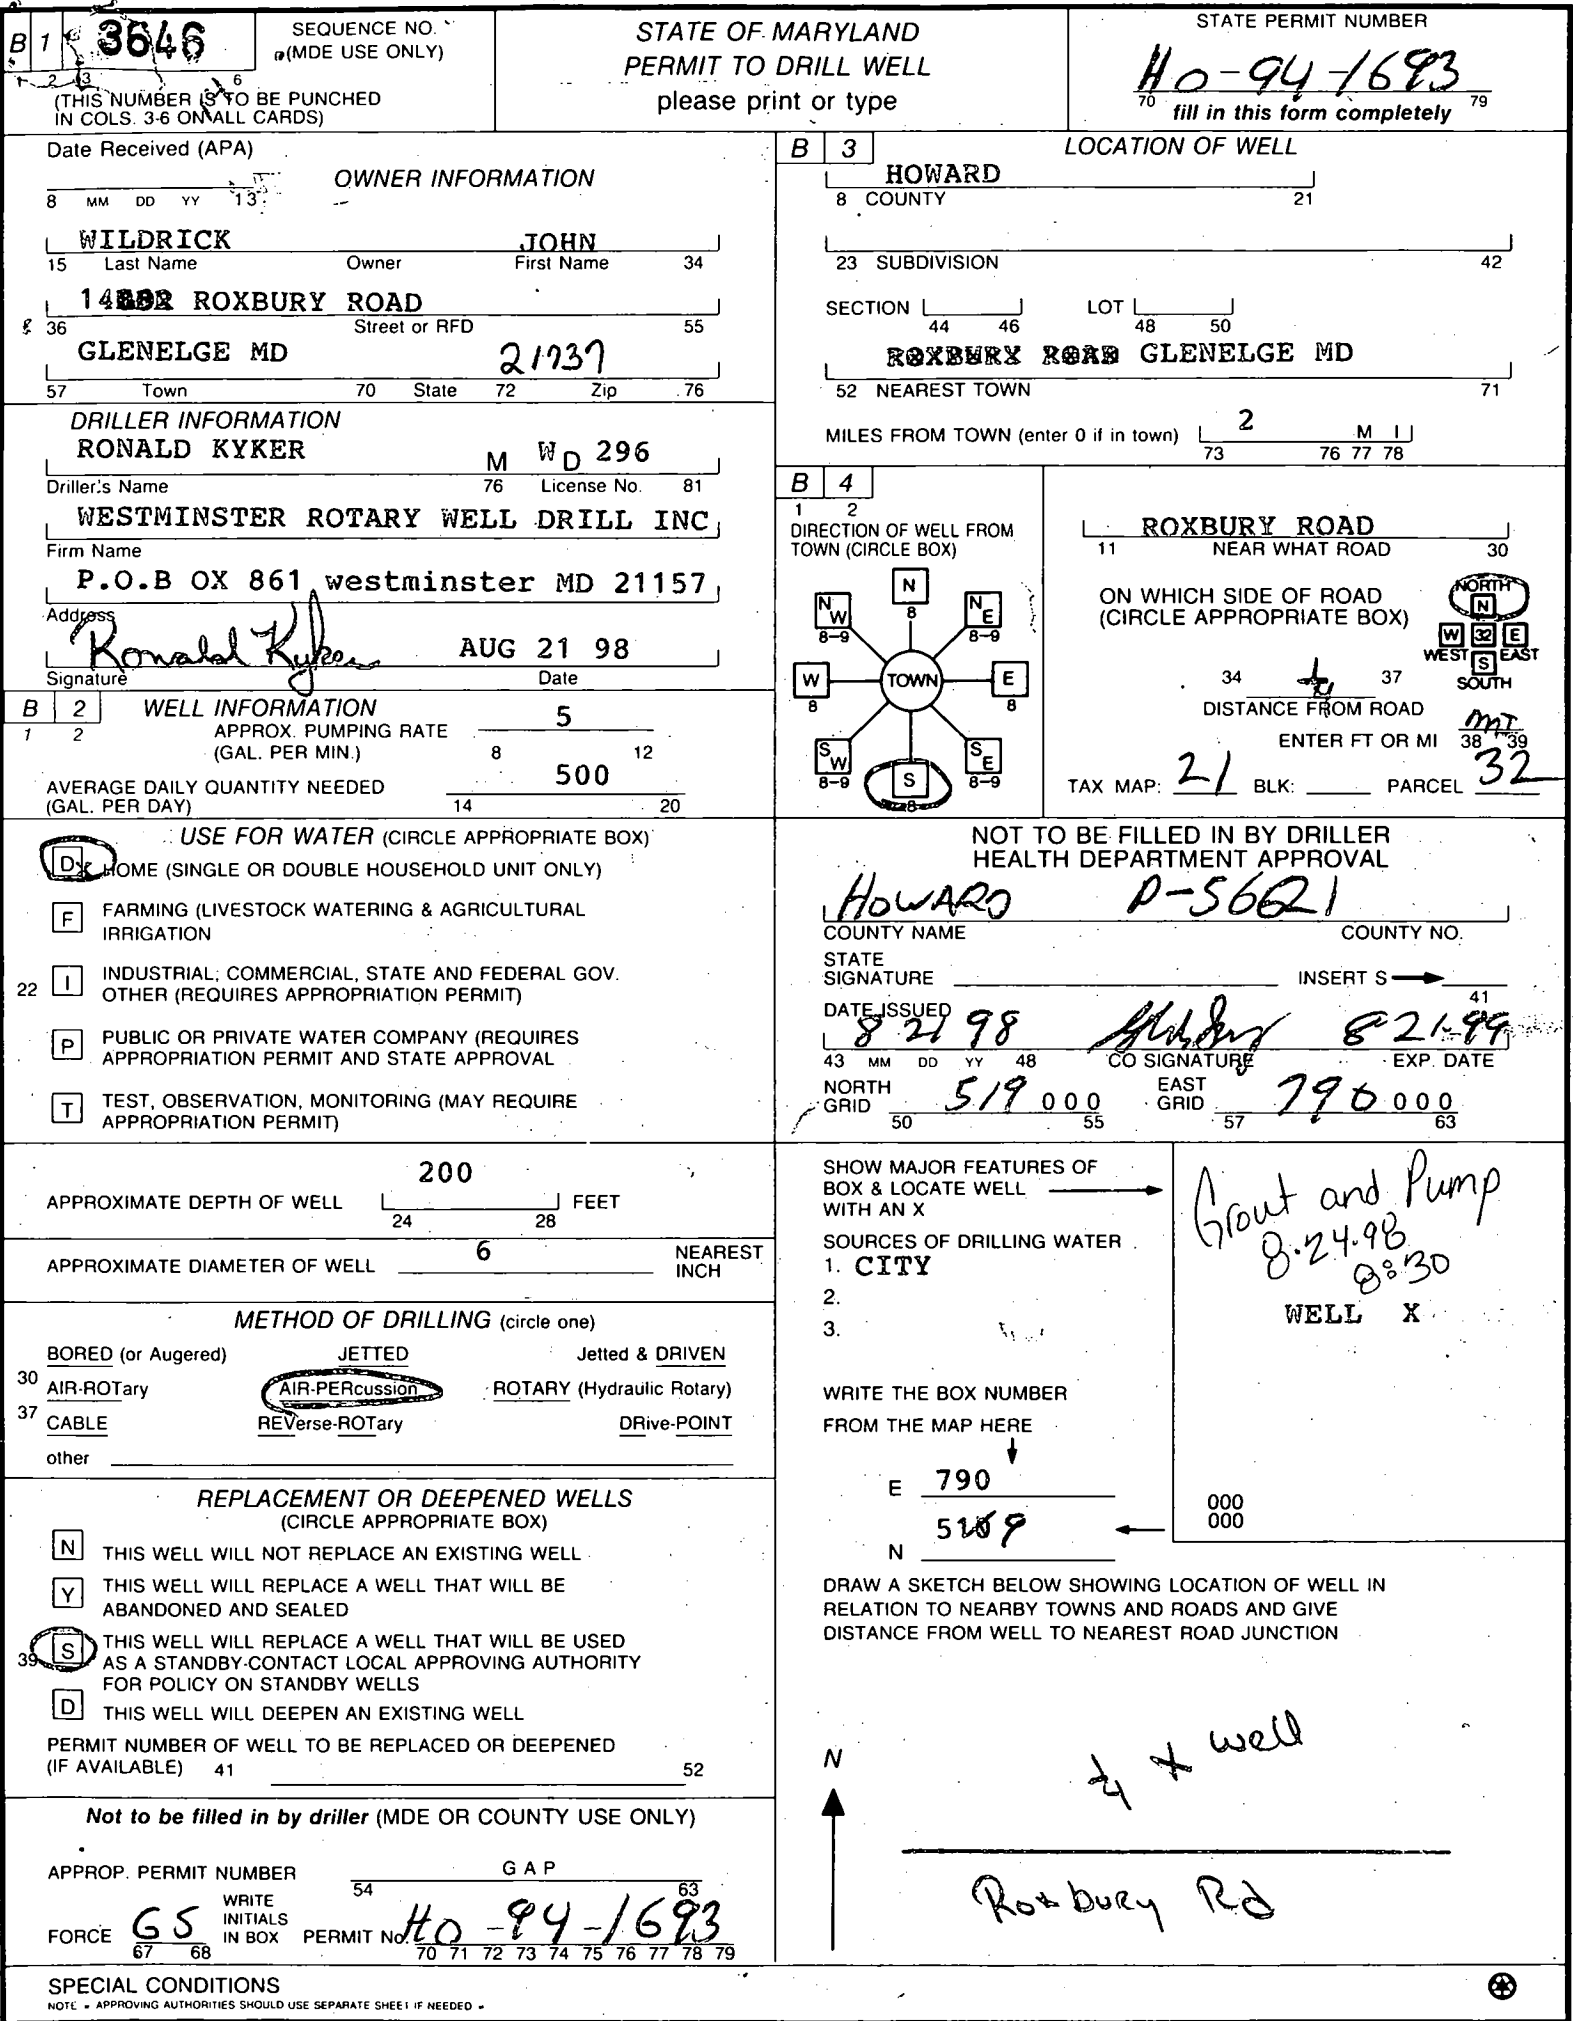 B 1 3646 SEQUENCE NO. (MDE USE ONLY)
1 2 3 6
(THIS NUMBER IS TO BE PUNCHED
IN COLS. 3-6 ON ALL CARDS)
STATE OF MARYLAND
PERMIT TO DRILL WELL
please print or type
STATE PERMIT NUMBER
HO-94-1693
70 79
fill in this form completely
Date Received (APA)
8 MM DD YY 13
OWNER INFORMATION
WILDRICK JOHN
15 Last Name Owner First Name 34
ROXBURY ROAD
36 Street or RFD 55
GLENELGE MD 21737
57 Town 70 State 72 Zip 76
DRILLER INFORMATION
RONALD KYKER M W D 296
Driller's Name 76 License No. 81
WESTMINSTER ROTARY WELL DRILL INC
Firm Name
P.O.B OX 861 westminster MD 21157
Address
Ronald Kyker AUG 21 98
Signature Date
B 2 WELL INFORMATION
1 2
APPROX. PUMPING RATE 5
(GAL. PER MIN.) 8 12
AVERAGE DAILY QUANTITY NEEDED 500
(GAL. PER DAY) 14 20
USE FOR WATER (CIRCLE APPROPRIATE BOX)
D HOME (SINGLE OR DOUBLE HOUSEHOLD UNIT ONLY)
F FARMING (LIVESTOCK WATERING & AGRICULTURAL
IRRIGATION
22 I INDUSTRIAL, COMMERCIAL, STATE AND FEDERAL GOV.
OTHER (REQUIRES APPROPRIATION PERMIT)
P PUBLIC OR PRIVATE WATER COMPANY (REQUIRES
APPROPRIATION PERMIT AND STATE APPROVAL
T TEST, OBSERVATION, MONITORING (MAY REQUIRE
APPROPRIATION PERMIT)
APPROXIMATE DEPTH OF WELL 200 FEET
24 28
APPROXIMATE DIAMETER OF WELL 6 NEAREST
INCH
METHOD OF DRILLING (circle one)
BORED (or Augered) JETTED Jetted & DRIVEN
30 AIR-ROTary AIR-PERcussion ROTARY (Hydraulic Rotary)
37 CABLE REVerse-ROTary DRive-POINT
other
REPLACEMENT OR DEEPENED WELLS
(CIRCLE APPROPRIATE BOX)
N THIS WELL WILL NOT REPLACE AN EXISTING WELL
Y THIS WELL WILL REPLACE A WELL THAT WILL BE
ABANDONED AND SEALED
39 S THIS WELL WILL REPLACE A WELL THAT WILL BE USED
AS A STANDBY-CONTACT LOCAL APPROVING AUTHORITY
FOR POLICY ON STANDBY WELLS
D THIS WELL WILL DEEPEN AN EXISTING WELL
PERMIT NUMBER OF WELL TO BE REPLACED OR DEEPENED
(IF AVAILABLE) 41 52
Not to be filled in by driller (MDE OR COUNTY USE ONLY)
APPROP. PERMIT NUMBER G A P
54 63
FORCE GS WRITE INITIALS IN BOX PERMIT No. HO-94-1693
67 68 70 71 72 73 74 75 76 77 78 79
B 3 LOCATION OF WELL
HOWARD
8 COUNTY 21
23 SUBDIVISION 42
SECTION LOT
44 46 48 50
ROXBURY ROAD GLENELGE MD
52 NEAREST TOWN 71
MILES FROM TOWN (enter 0 if in town) 2 M I
73 76 77 78
B 4
1 2
DIRECTION OF WELL FROM
TOWN (CIRCLE BOX)
N
8
NW NE
8-9 8-9
W TOWN E
8 8
SW SE
8-9 8-9
S
8
ROXBURY ROAD
11 NEAR WHAT ROAD 30
ON WHICH SIDE OF ROAD
(CIRCLE APPROPRIATE BOX)
NORTH
N
W 32 E
WEST S EAST
SOUTH
34 1/4 37
DISTANCE FROM ROAD
ENTER FT OR MI MI
38 39
TAX MAP: 21 BLK: PARCEL 32
NOT TO BE FILLED IN BY DRILLER
HEALTH DEPARTMENT APPROVAL
HOWARD P-56621
COUNTY NAME COUNTY NO.
STATE
SIGNATURE INSERT S
41
DATE ISSUED
8 21 98 8-21-99
43 MM DD YY 48 CO SIGNATURE EXP. DATE
NORTH GRID 519 000 EAST GRID 790 000
50 55 57 63
SHOW MAJOR FEATURES OF
BOX & LOCATE WELL
WITH AN X
SOURCES OF DRILLING WATER
1. CITY
2.
3.
Grout and Pump
8.24.98
8:30
WELL X
WRITE THE BOX NUMBER
FROM THE MAP HERE
E 790
N 519
000
000
DRAW A SKETCH BELOW SHOWING LOCATION OF WELL IN
RELATION TO NEARBY TOWNS AND ROADS AND GIVE
DISTANCE FROM WELL TO NEAREST ROAD JUNCTION
N
1/4 X well
Roxbury Rd
SPECIAL CONDITIONS
NOTE = APPROVING AUTHORITIES SHOULD USE SEPARATE SHEET IF NEEDED =